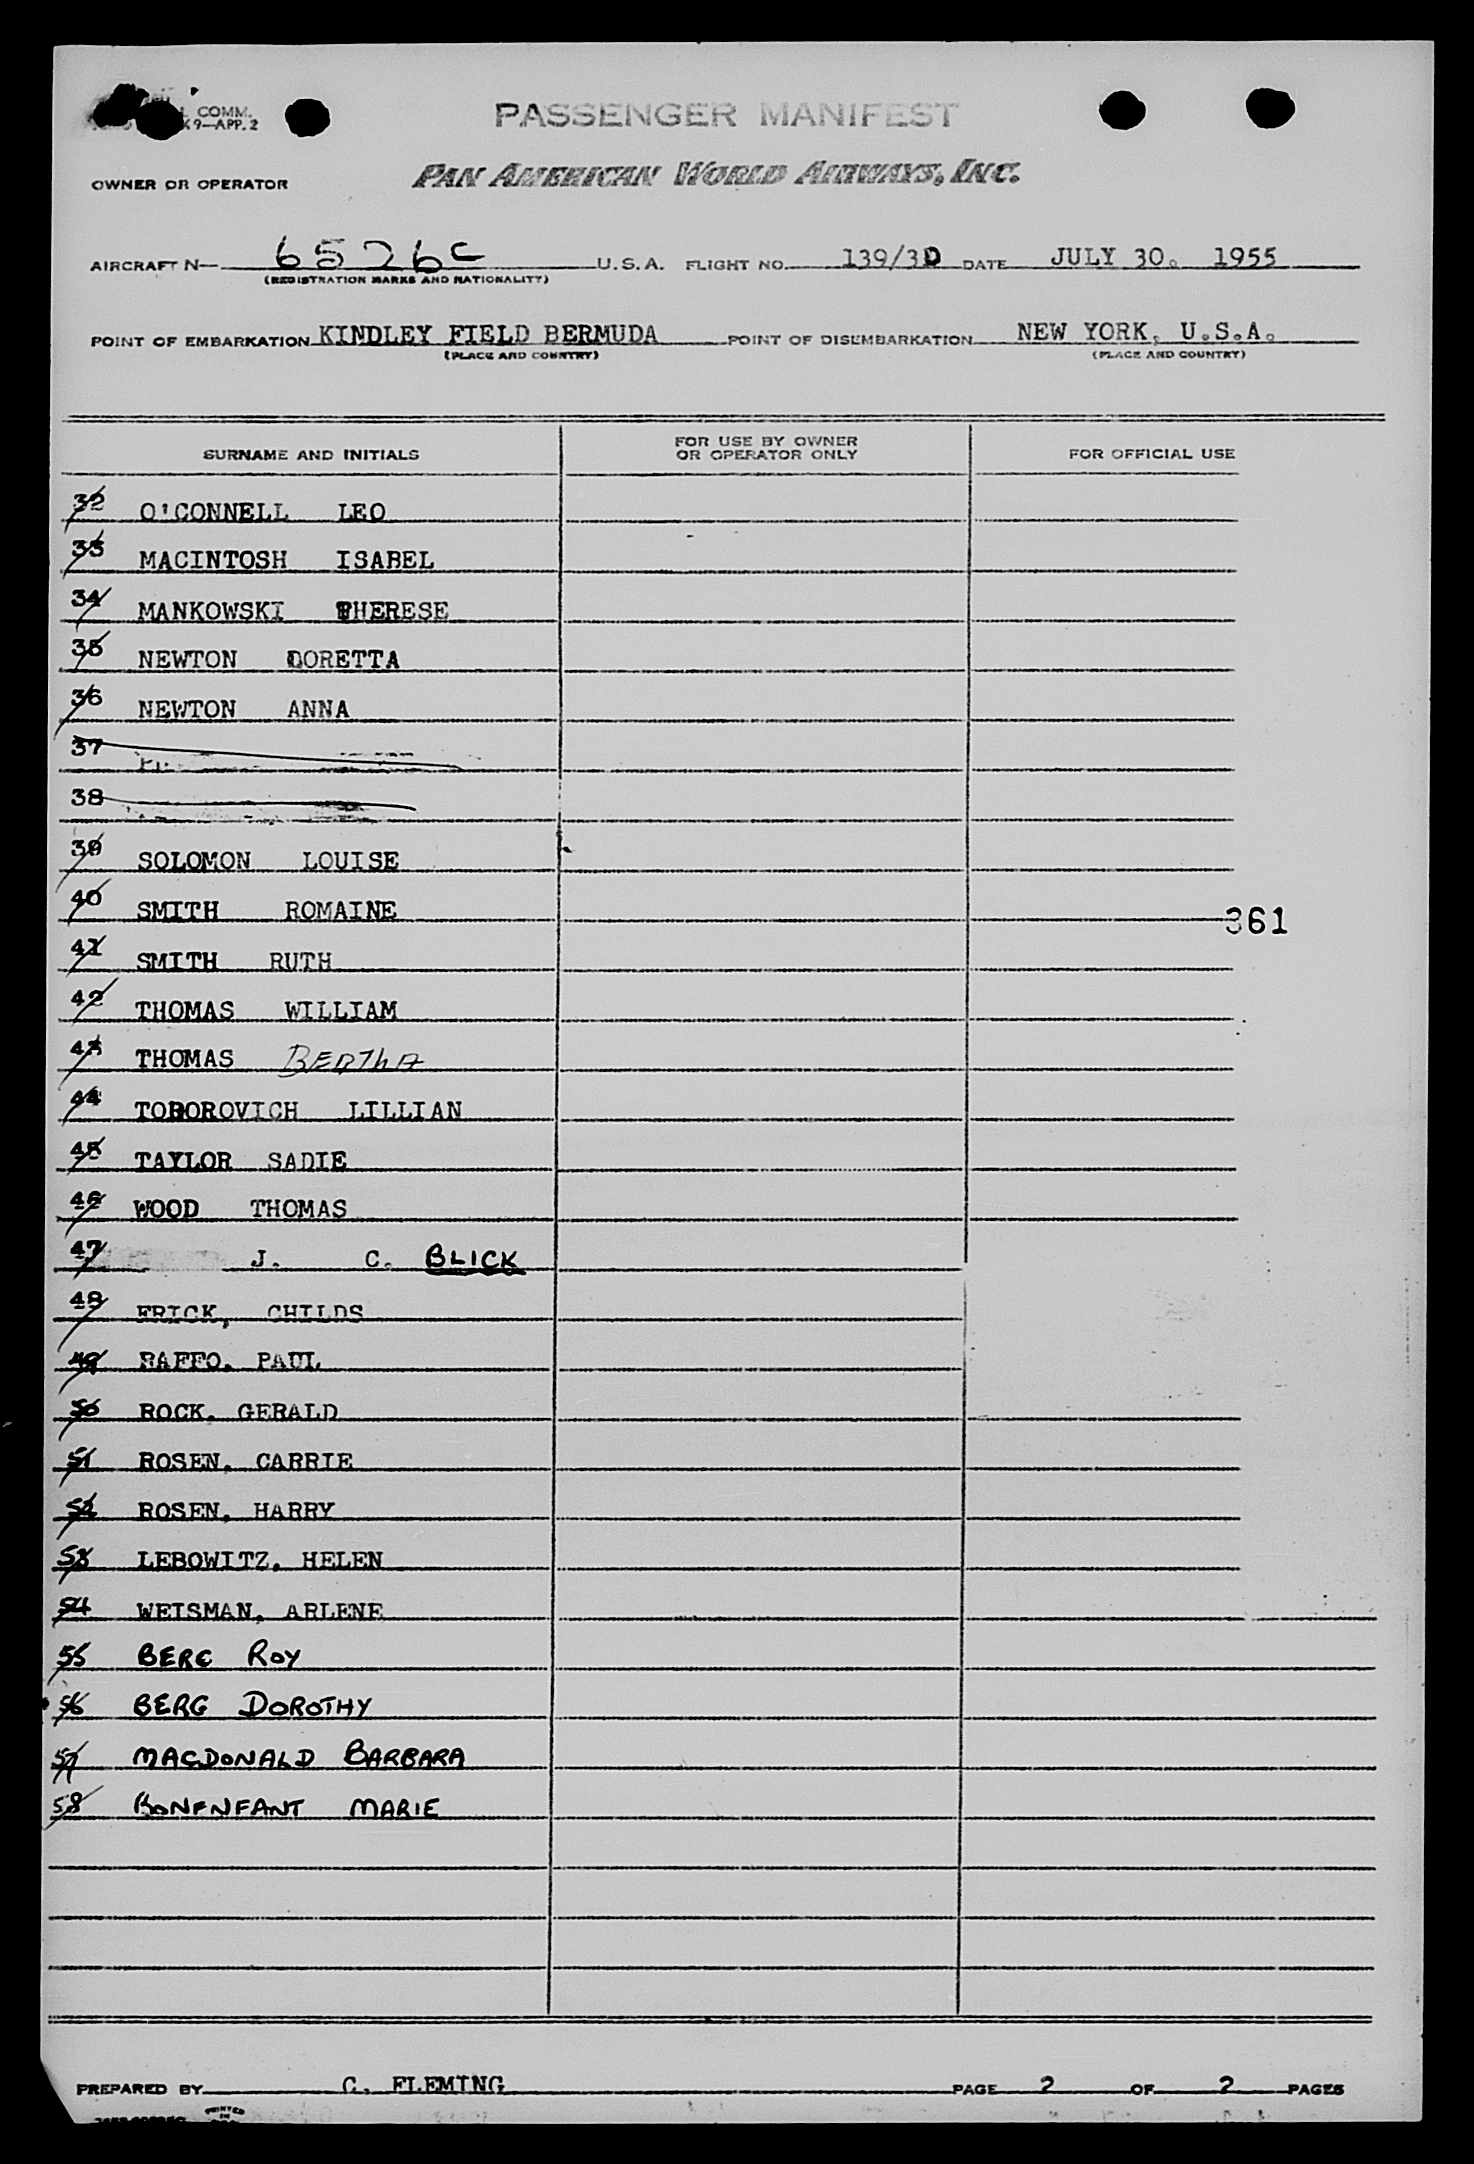 COMM.
9—APP. 2
PASSENGER MANIFEST
OWNER OR OPERATOR PAN AMERICAN WORLD AIRWAYS, INC.
AIRCRAFT N— 6526C U.S.A. FLIGHT NO. 139/30 DATE JULY 30. 1955
(REGISTRATION MARKS AND NATIONALITY)
POINT OF EMBARKATION KINDLEY FIELD BERMUDA POINT OF DISEMBARKATION NEW YORK, U.S.A.
(PLACE AND COUNTRY) (PLACE AND COUNTRY)
SURNAME AND INITIALS FOR USE BY OWNER OR OPERATOR ONLY FOR OFFICIAL USE
32 O'CONNELL LEO
33 MACINTOSH ISABEL
34 MANKOWSKI THERESE
35 NEWTON DORETTA
36 NEWTON ANNA
37
38
39 SOLOMON LOUISE
40 SMITH ROMAINE 361
41 SMITH RUTH
42 THOMAS WILLIAM
43 THOMAS BERTHA
44 TOBOROVICH LILLIAN
45 TAYLOR SADIE
46 WOOD THOMAS
47 J. C. BLICK
48 FRICK, CHILDS
49 RAFFO, PAUL
50 ROCK, GERALD
51 ROSEN, CARRIE
52 ROSEN, HARRY
53 LEBOWITZ, HELEN
54 WEISMAN, ARLENE
55 BERG ROY
56 BERG DOROTHY
57 MACDONALD BARBARA
58 BONENFANT MARIE
PREPARED BY C. FLEMING PAGE 2 OF 2 PAGES
PRINTED
IN